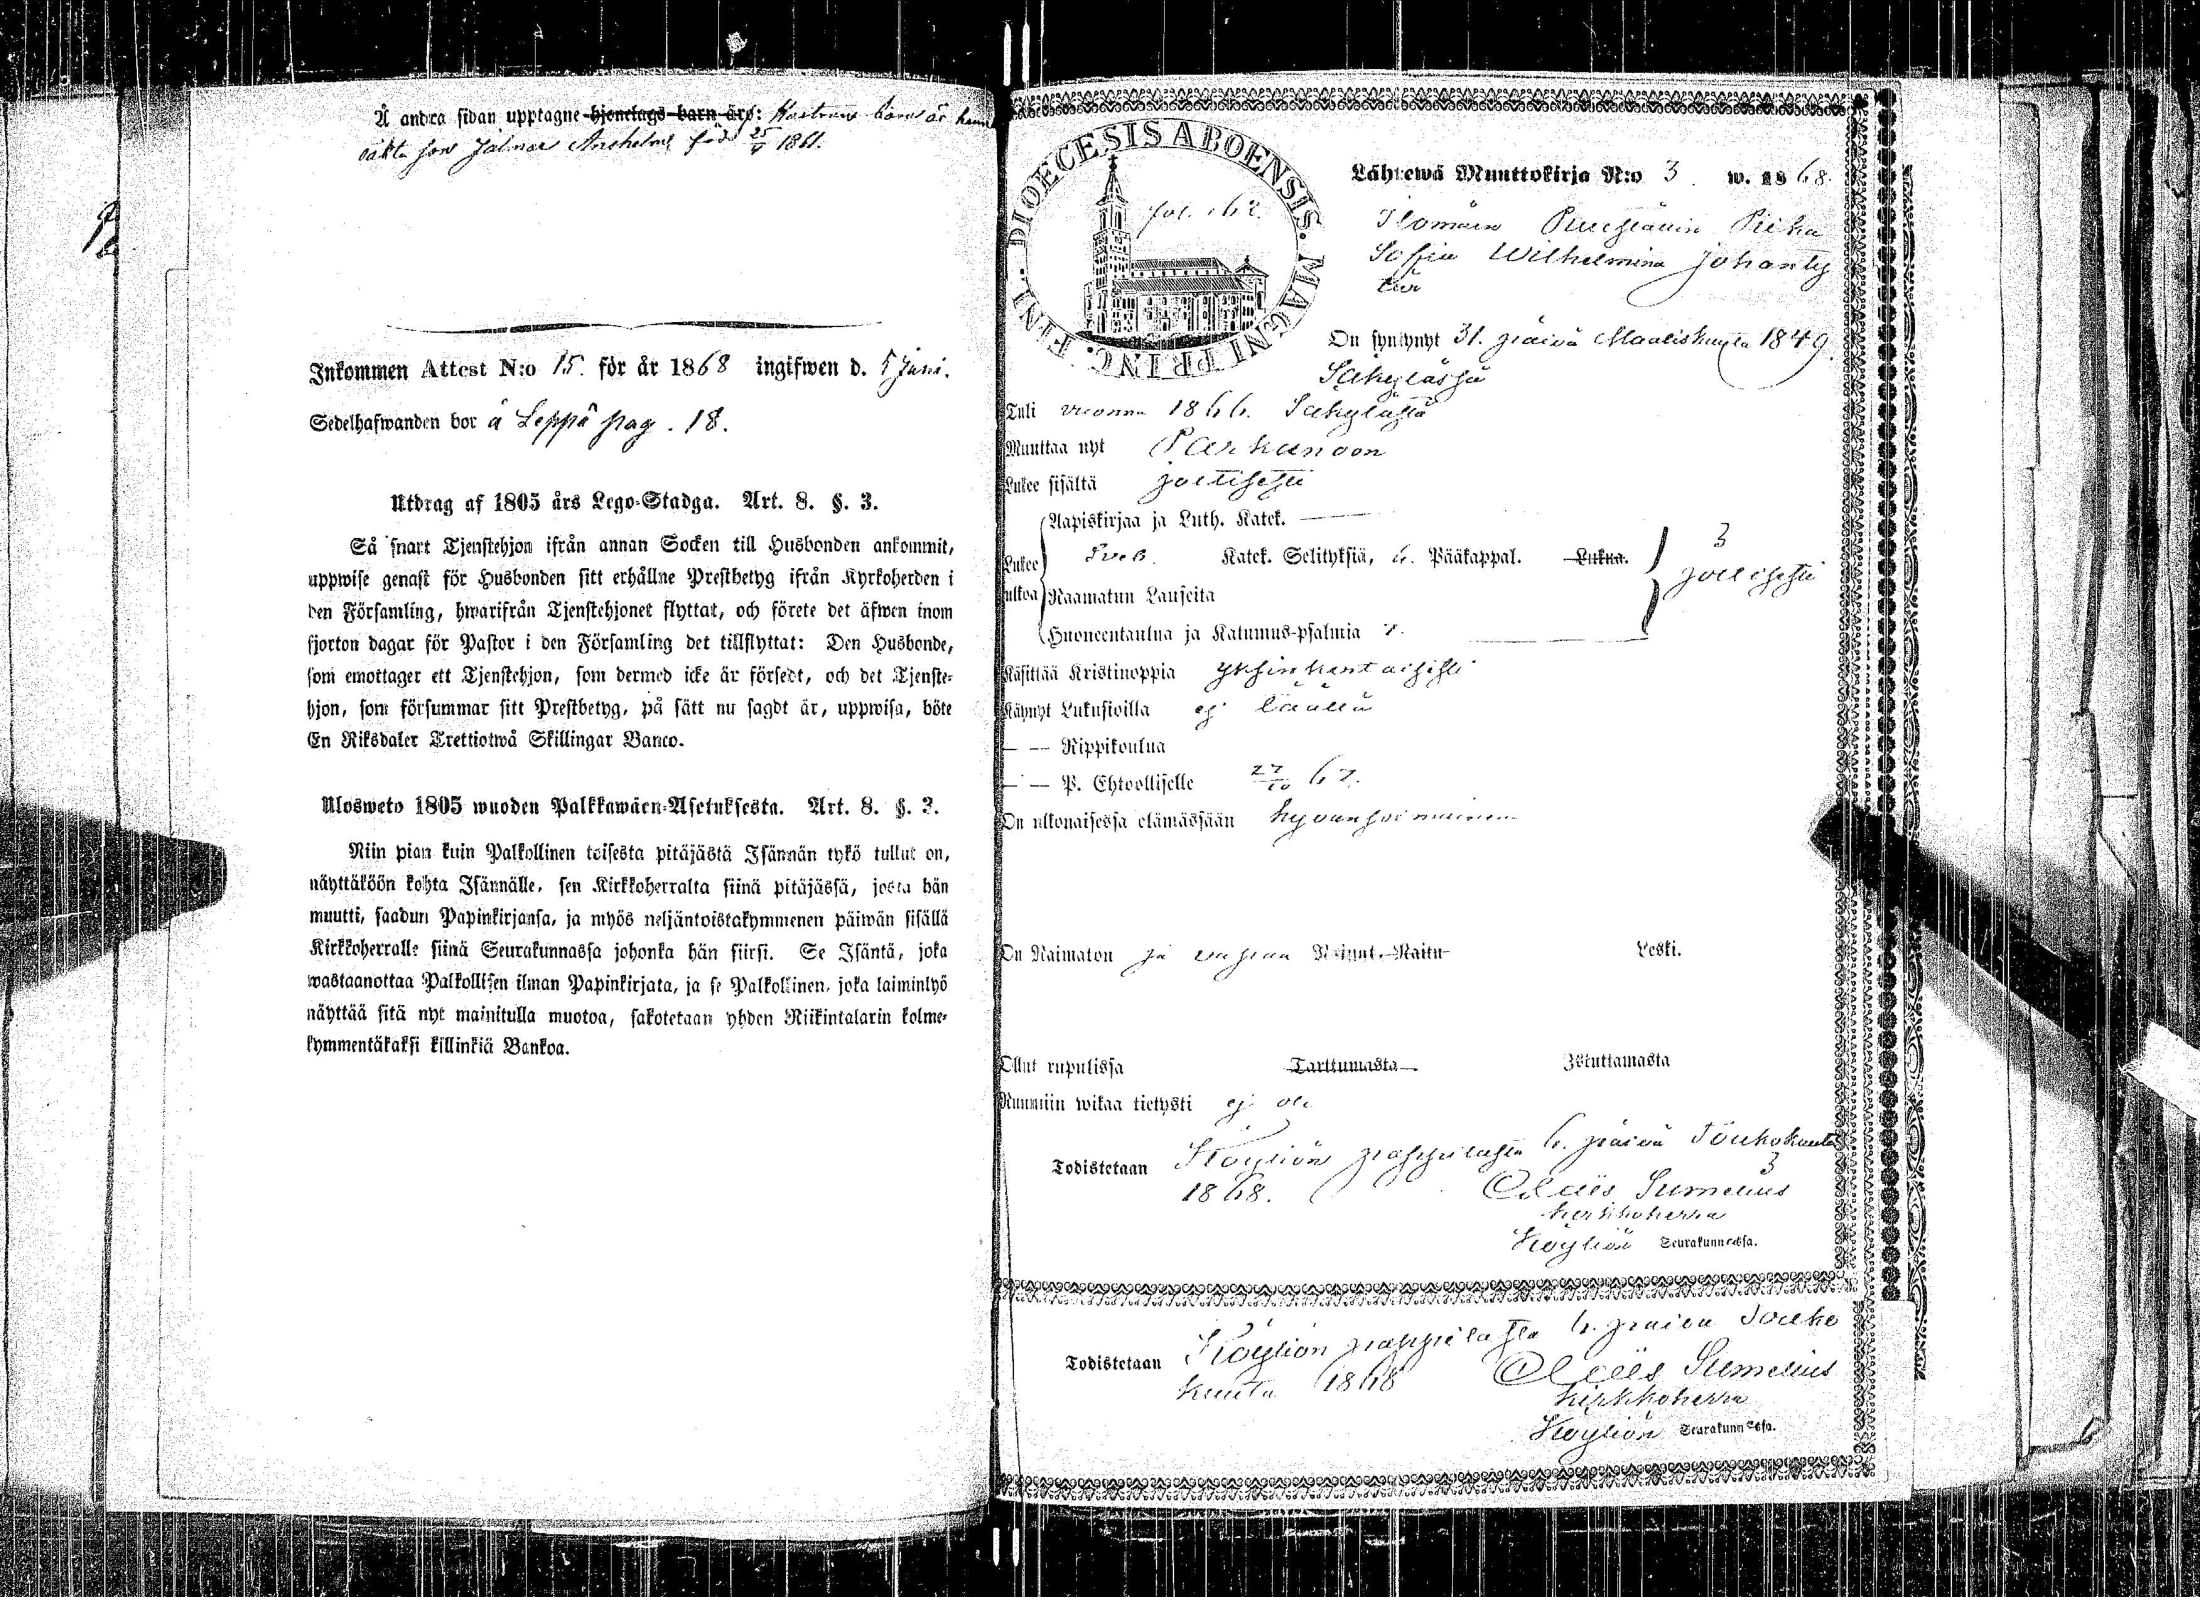 Å andra sidan upptagne hjonelags barn äro: Hustruns barn är henn
oäkta son Jalmar Anshelm född 25/9 1861.
Inkommen Attest N:o 15. för år 1868 ingifwen d. 5 Juni.
Sedelhafwanden bor å Leppä pag. 18.
Utdrag af 1805 års Lego-Stadga. Art. 8. §. 3.
Så snart Tjenstehjon ifrån annan Socken till Husbonden ankommit,
uppwise genast för Husbonden sitt erhållne Prestbetyg ifrån Kyrkoherden i
den Församling, hwarifrån Tjenstehjonet flyttat, och förete det äfwen inom
fjorton dagar för Pastor i den Församling det tillflyttat: Den Husbonde,
som emottager ett Tjenstehjon, som dermed icke är försedt, och det Tjenste-
hjon, som försummar sitt Prestbetyg, på sätt nu sagdt är, uppwisa, böte
En Riksdaler Trettiotwå Skillingar Banco.
Ulosweto 1805 wuoden Palkkawäen-Asetuksesta. Art. 8. §. 3.
Niin pian kuin Palkollinen toisesta pitäjästä Isännän tykö tullut on,
näyttäköön kohta Isännälle, sen Kirkkoherralta siinä pitäjässä, josta hän
muutti, saadun Papinkirjansa, ja myös neljäntoistakymmenen päiwän sisällä
Kirkkoherralle siinä Seurakunnassa johonka hän siirsi. Se Isäntä, joka
wastaanottaa Palkollisen ilman Papinkirjata, ja se Palkollinen, joka laiminlyö
näyttää sitä nyt mainitulla muotoa, sakotetaan yhden Riikintalarin kolme-
kymmentäkaksi killinkiä Bankoa.
DIOECESIS ABOENSIS. MAGNI PRINC. FINL.
fol. 162.
Lähtewä Muuttokirja N:o 3. w. 1868.
Ilomäen Puustellin Piika
Sofia Wilhelmina Johantyt
tär
On syntynyt 31. päivä Maaliskuuta 1849.
Säkylässä
Tuli vuonna 1866. Säkylästä
Muuttaa nyt Parkanoon
Lukee sisältä joltisesti
Aapiskirjaa ja Luth. Katek.
Lukee Sveb. Katek. Selityksiä, 6. Pääkappal. Lukua. 3
ulkoa Raamatun Lauseita joltisesti
Huoneentaulua ja Katumus-psalmia 7.
Käsittää Kristinoppia yksinkertaisesti
Käynyt Lukusioilla ej täällä
— — Rippikoulua
— — P. Ehtoolliselle 27/10 67.
On ulkonaisessa elämässään hyvänsoimainen
On Naimaton ja vapaa Nainut. Naitu Leski.
Ollut rupulissa Tarttumasta Istuttamasta
Ruumiin wikaa tietysti ej ole
Todistetaan Köyliön pappilasta 6. päivä Toukokuuta
1868. Claës Sumelius
kirkkoherra
Köyliön Seurakunnassa.
Todistetaan Köyliön pappilasta 6. päivä Touko
kuuta 1868 Claës Sumelius
kirkkoherra
Köyliön Seurakunnassa.